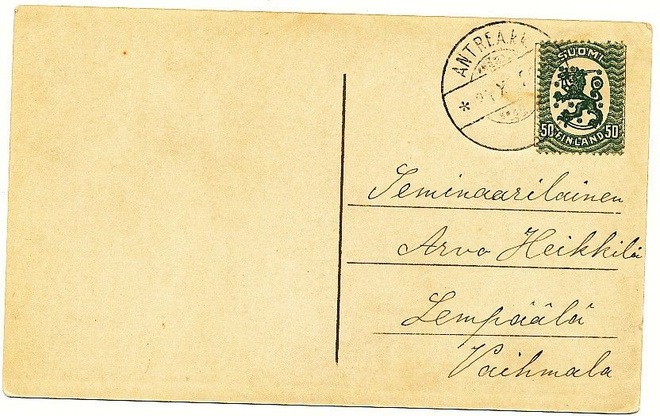 ANTREA
SUOMI
50 FINLAND 50
Seminaarilainen
Arvo Heikkilä
Lempäälä
Vaihmala